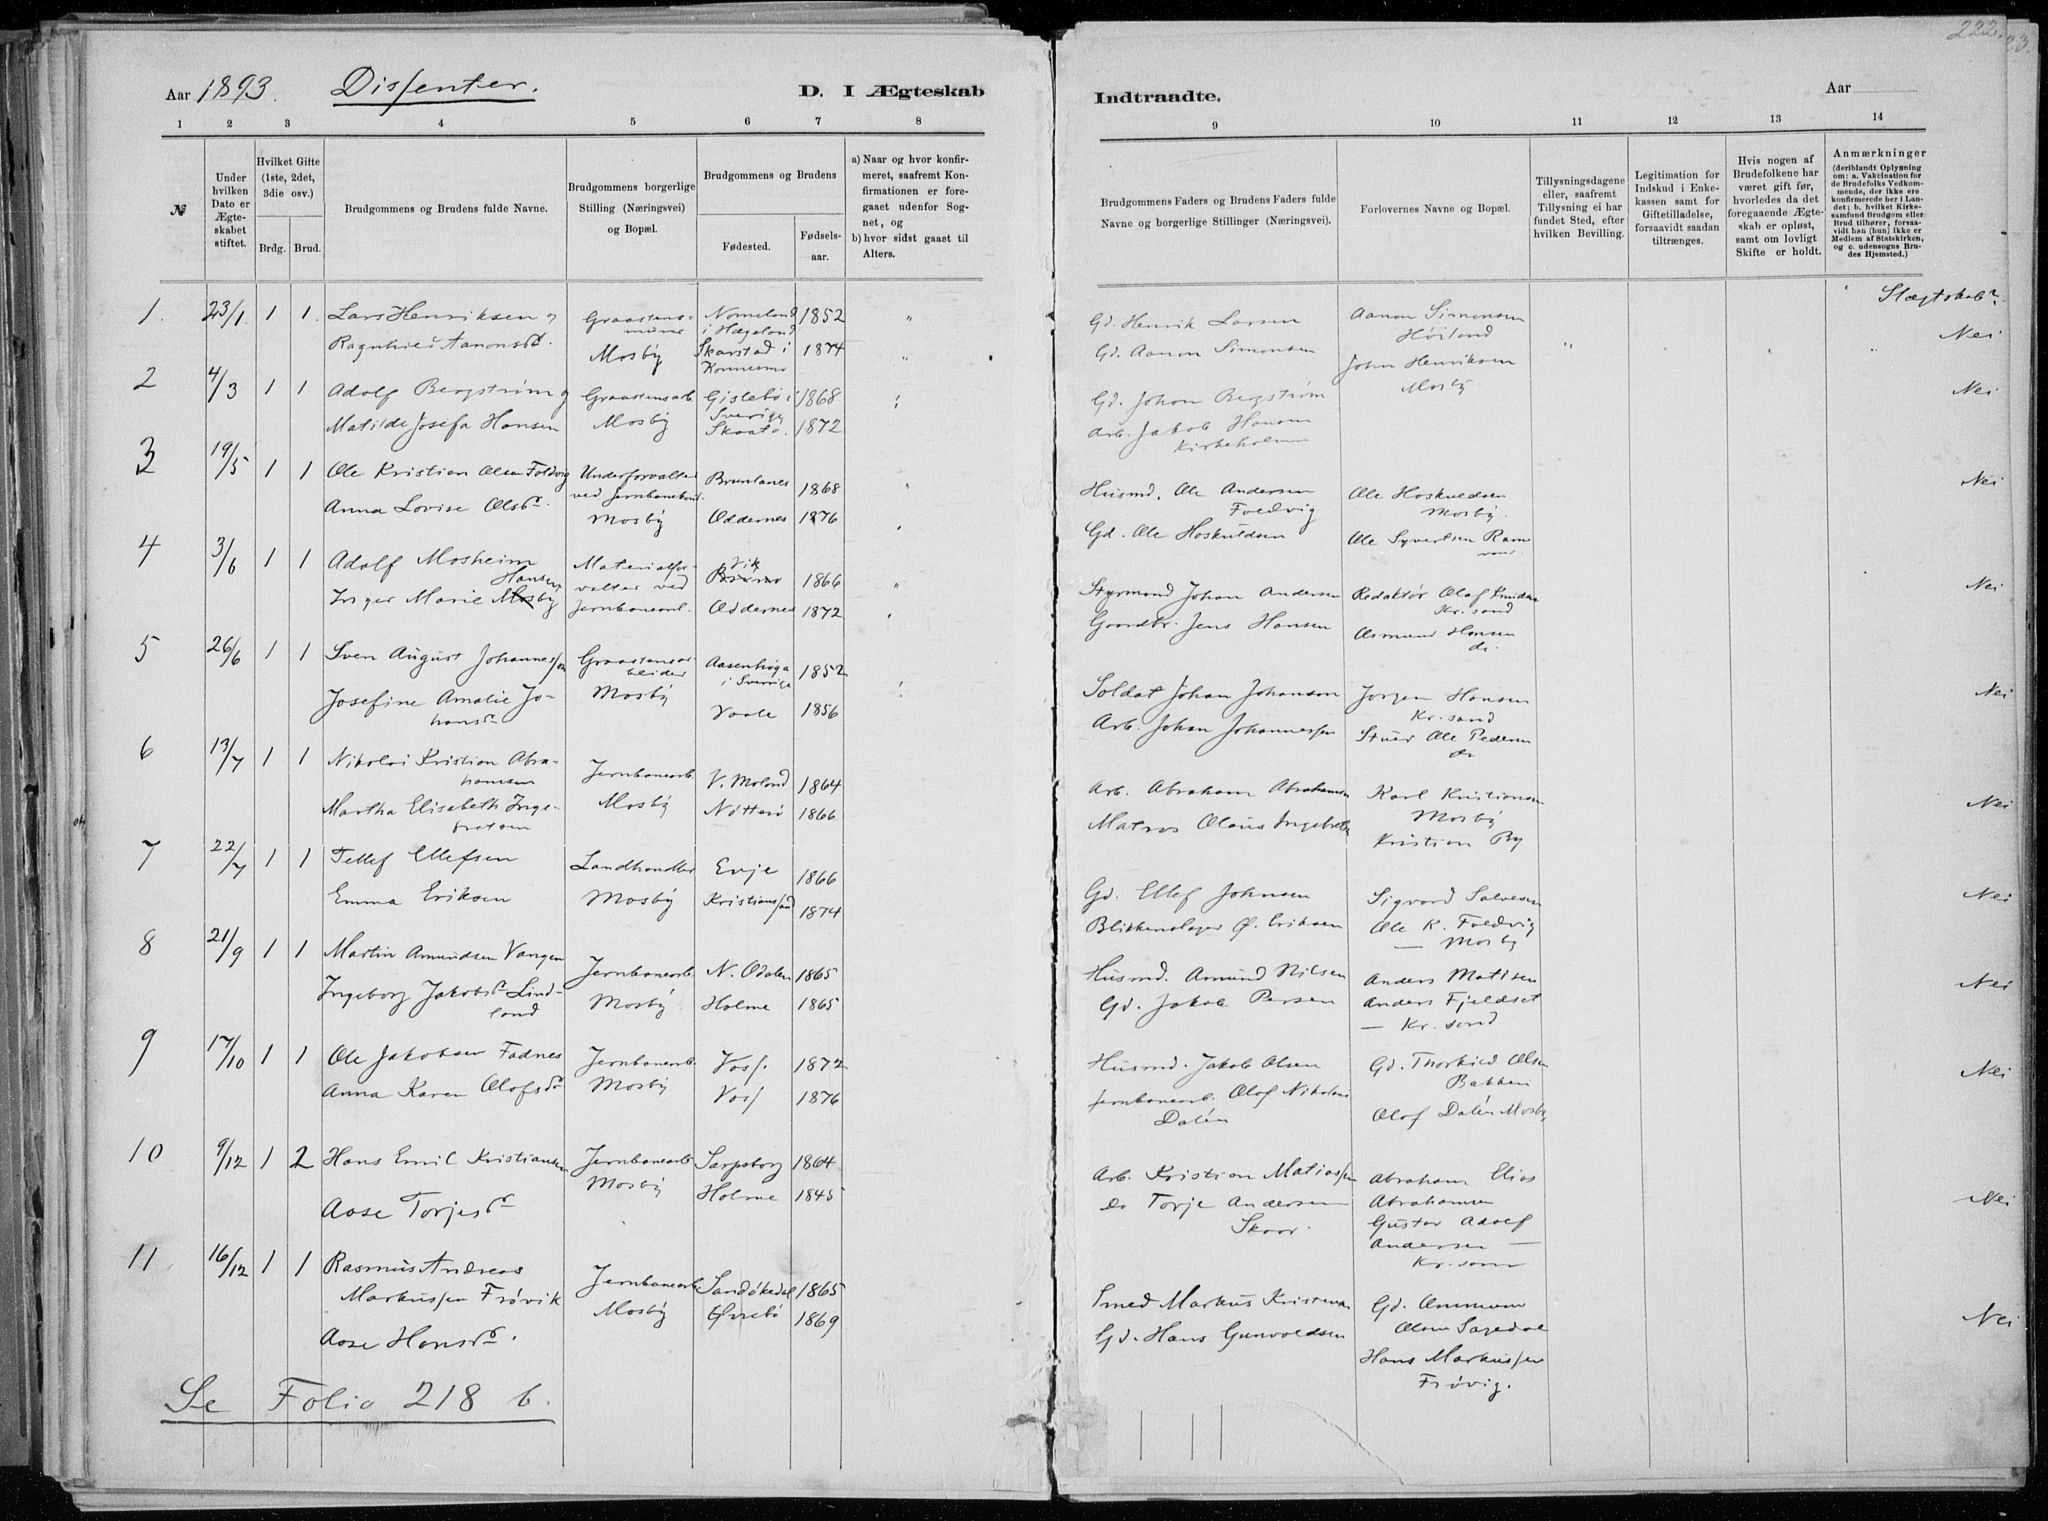 222.
23.
Aar 1893. Dissenter. D. I Ægteskab
Indtraadte. Aar
1 2 3 4 5 6 7 8
9 10 11 12 13 14
№
Under hvilken Dato er Ægteskabet stiftet.
Hvilket Gifte (1ste, 2det, 3die osv.)
Brdg. Brud.
Brudgommens og Brudens fulde Navne.
Brudgommens borgerlige Stilling (Næringsvei) og Bopæl.
Brudgommens og Brudens
Fødested. Fødselsaar.
a) Naar og hvor konfirmeret, saafremt Konfirmationen er foregaaet udenfor Sognet, og
b) hvor sidst gaaet til Alters.
Brudgommens Faders og Brudens Faders fulde Navne og borgerlige Stillinger (Næringsvei).
Forlovernes Navne og Bopæl.
Tillysningsdagene eller, saafremt Tillysning ei har fundet Sted, efter hvilken Bevilling.
Legitimation for Indskud i Enkekassen samt for Giftetilladelse, forsaavidt saadan tiltrænges.
Hvis nogen af Brudefolkene har været gift før, hvorledes da det foregaaende Ægteskab er opløst, samt om lovligt Skifte er holdt.
Anmærkninger (deriblandt Oplysning om: a. Vakcination for de Brudefolks Vedkommende, der ikke ere konfirmerede her i Landet; b. hvilket Kirkesamfund Brudgom eller Brud tilhører, forsaavidt han (hun) ikke er Medlem af Statskirken, og c. udensogns Brudes Hjemsted.)
Slægtskab?
1. 23/1. 1 1. Lars Henriksen og Graastensmurer Nomeland i Hægeland 1852 "
Ragnhild Aanonsd. Mosby Skarstad i Konnesmo 1874 "
Gd. Henrik Larsen Aanon Simonsen Høiland
Gd. Aanon Simonsen John Henriksen Mosby. Nei
2 4/3 1 1 Adolf Bergstrøm og Graastensarb. Gislebø i Sverige 1868
Matilde Josefa Hansen Mosby Skaatø. 1872
Gd. Johan Bergstrøm Nei
Arb. Jakob Hansen Kirkeholmen
3 19/5 1 1 Ole Kristian Olsen Foldvig Underforvalter ved Jernbanebond. Brunlanes 1868 "
Anna Lovise Olsd. Mosby Oddernes 1876
Husmd. Ole Andersen Foldvig Ole Hoskuldsen Mosby. Nei
Gd. Ole Hoskuldsen Ole Syvertsen
4 3/6 1 1 Adolf Mosheim Materialforvalter ved Jernbaneanl. Vik 1866 "
Inger Marie Mosby Hansen Oddernes 1872
Styrmand Johan Andersen Redaktør Olaf Knudsen Kr.sand Nei
Gaardbr. Jens Hansen Asmund Hansen do.
5 26/6 1 1 Sven August Johannessen Graastensarbeider Aasenhøga i Sverige 1852
Josefine Amalie Johansd. Mosby Vaale 1856
Soldat Johan Johanson Jørgen Hansen Kr.sand Nei
Arb. Johan Johannessen Stuer Ole Pedersen do
6 13/7 1 1 Nikolai Kristian Abrahamsen Jernbanearb. V. Moland 1864
Martha Elisabeth Ingebretsen Mosby Nøtterø 1866
Arb. Abraham Abrahamsen Karl Kristiansen Mosby Nei
Matros Olaus Ingebretsen Kristian By
7 22/7 1 1 Tellef Ellefsen Landhandler Evje 1866
Emma Eriksen Mosby Kristianssand 1874
Gd. Ellef Johnsen Sigvard Salvesen Nei
Blikkenslager Ø. Eriksen Ole K. Foldvig — Mosby
8 21/9 1 1 Martin Amundsen Vangen Jernbanearb. N. Odalen 1865
Ingeborg Jakobsd. Lindland Mosby Holme 1865
Husmd. Amund Nilsen Anders Matisen Nei
Gd. Jakob Persen Anders Fjeldset — Kr.sand
9 17/10 1 1 Ole Jakobsen Fadnes Jernbanearb. Voss. 1872
Anna Karen Olafsd. Mosby Voss 1876
Husmd. Jakob Olsen Gd. Thorkild Olsen Bakken Nei
Jernbanearb. Olaf Nikolai Dalén Olaf Dalén Mosby
10 9/12 1 2 Hans Emil Kristiansen Jernbanearb. Sarpsborg 1864
Aase Torjesd. Mosby Holme 1845
Arb. Kristian Matiassen Abraham Elias Abrahamsen
do Torje Andersen Skaar. Gustav Adolf Andersen — Kr.sand Nei
11 16/12 1 1 Rasmus Andreas Markussen Frøvik Jernbanearb. Sandøkedal 1865
Aase Hansd. Mosby Øvrebø 1869
Smed Markus Kristensen Gd. Ommund Olsen Sagedal Nei
Gd. Hans Gunvoldsen Hans Markussen Frøvig.
Se Folio 218 b.